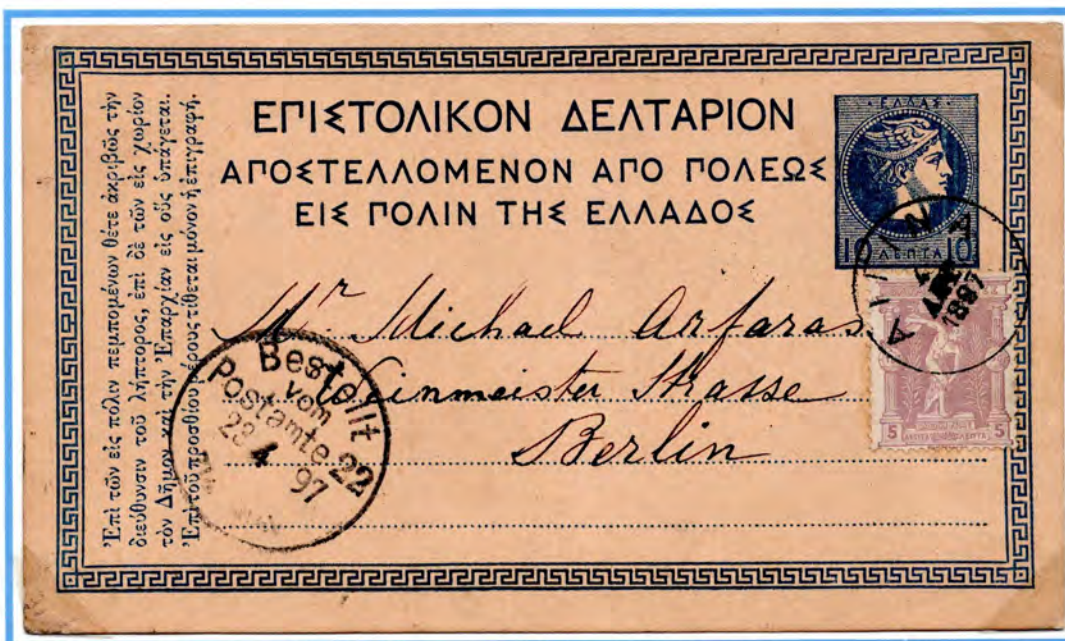 Ἐπὶ τῶν εἰς πόλιν πεμπομένων θέτε ἀκριβῶς τὴν
διεύθυνσιν τοῦ λήπτορος, ἐπὶ δὲ τῶν εἰς χωρίον
τὸν Δῆμον καὶ τὴν Ἐπαρχίαν εἰς οὓς ὑπάγεται.
Ἐπὶ τοῦ προσθίου μέρους τίθεται μόνον ἡ ἐπιγραφή.
ΕΠΙΣΤΟΛΙΚΟΝ ΔΕΛΤΑΡΙΟΝ
ΑΠΟΣΤΕΛΛΟΜΕΝΟΝ ΑΠΟ ΠΟΛΕΩΣ
ΕΙΣ ΠΟΛΙΝ ΤΗΣ ΕΛΛΑΔΟΣ
·ΕΛΛΑΣ·
10 ΛΕΠΤΑ 10
ΑΙΓΙΝΑ
1897
5 5
Mr Michael Arfaras
Weinmeister Strasse
Berlin
Bestellt
vom
Postamte 22
23
4
97